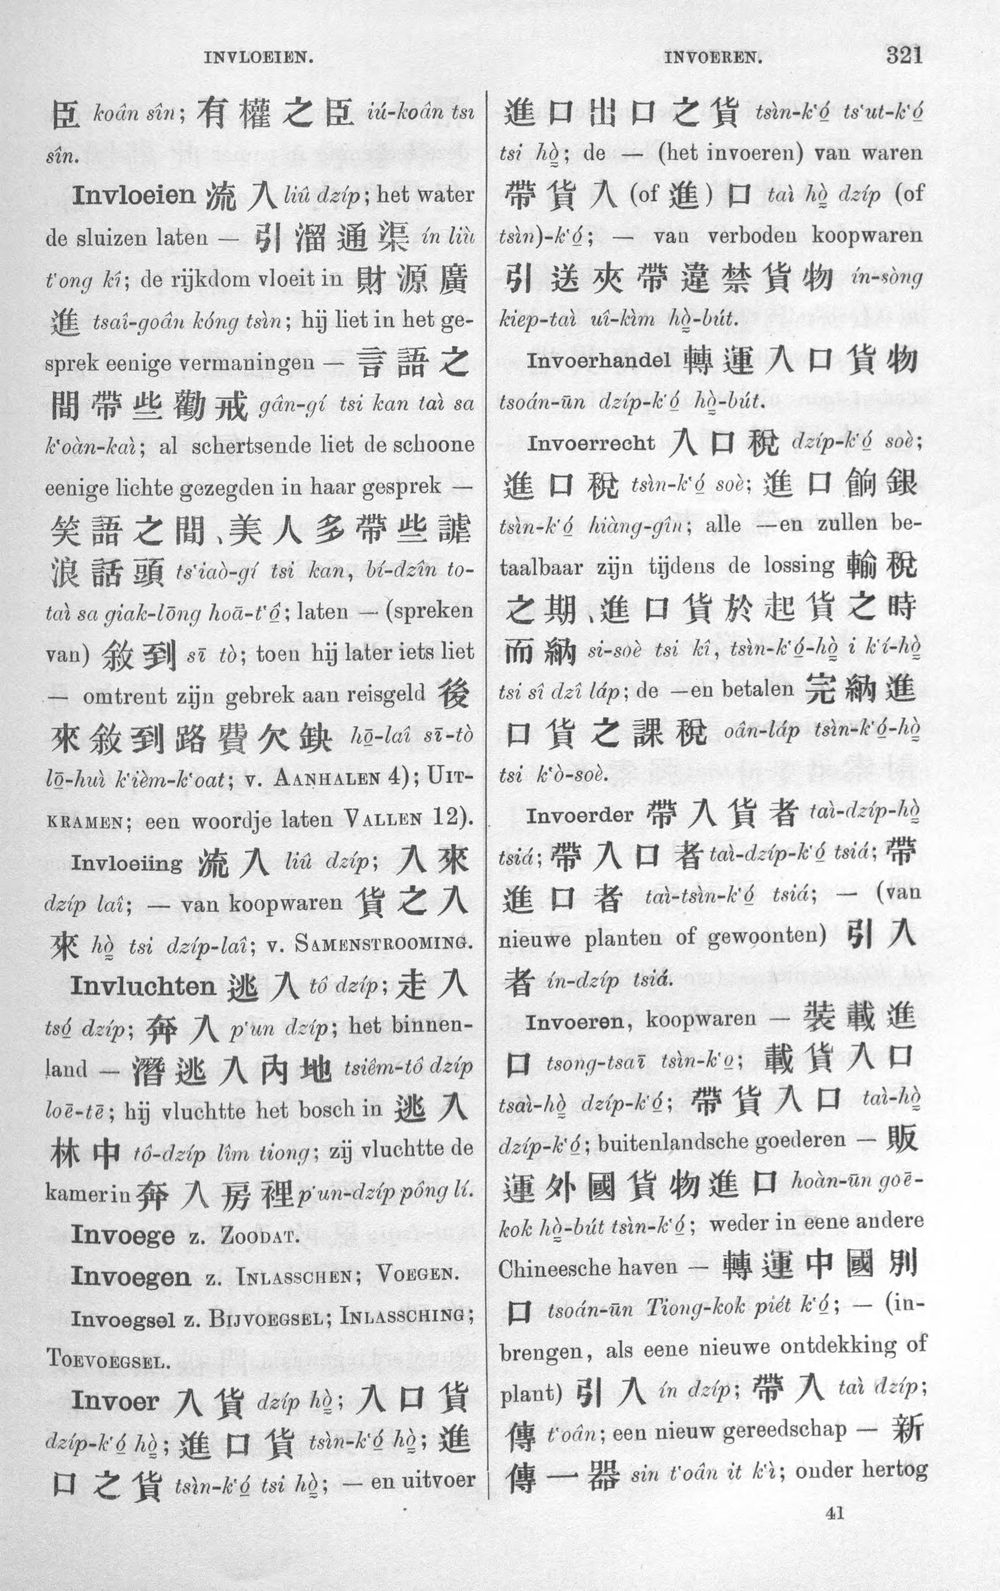 INVLOEIEN.
INVOEREN.
321
臣 koân sîn; 有權之臣 iú-koân tsi
sîn.
Invloeien 流入 liû dzíp; het water
de sluizen laten — 引溜通渠 ín liù
t‘ong kî; de rijkdom vloeit in 財源廣
進 tsaî-goân kóng tsìn; hij liet in het ge-
sprek eenige vermaningen — 言語之
間帶些勸戒 gân-gí tsi kan taì sa
k‘oàn-kaì; al schertsende liet de schoone
eenige lichte gezegden in haar gesprek —
笑語之間、美人多帶些謔
浪話頭 ts‘iaò-gí tsi kan, bí-dzîn to-
taì sa giak-lōng hoā-t‘ô̤; laten — (spreken
van) 敘到 sī tò; toen hij later iets liet
— omtrent zijn gebrek aan reisgeld 後
來敘到路費欠缺 hō̤-laî sī-tò
lō̤-huì k‘ièm-k‘oat; v. AANHALEN 4); UIT-
KRAMEN; een woordje laten VALLEN 12).
Invloeiing 流入 liû dzíp; 入來
dzíp laî; — van koopwaren 貨之入
來 hò̤ tsi dzíp-laî; v. SAMENSTROOMING.
Invluchten 逃入 tô dzíp; 走入
tsó̤ dzíp; 奔入 p‘un dzíp; het binnen-
land — 潛逃入內地 tsiêm-tô dzíp
loē-tē; hij vluchtte het bosch in 逃入
林中 tô-dzíp lîm tiong; zij vluchtte de
kamer in 奔入房裡 p‘un-dzíp pông lí.
Invoege z. ZOODAT.
Invoegen z. INLASSCHEN; VOEGEN.
Invoegsel z. BIJVOEGSEL; INLASSCHING;
TOEVOEGSEL.
Invoer 入貨 dzíp hò̤; 入口貨
dzíp-k‘ó̤ hò̤; 進口貨 tsìn-k‘ó̤ hò̤; 進
口之貨 tsìn-k‘ó̤ tsi hò̤; — en uitvoer
進口出口之貨 tsìn-k‘ó̤ ts‘ut-k‘ó̤
tsi hò̤; de — (het invoeren) van waren
帶貨入 (of 進) 口 taì hò̤ dzíp (of
tsìn)-k‘ó̤; — van verboden koopwaren
引送夾帶違禁貨物 ín-sòng
kiep-taì uî-kìm hò̤-bút.
Invoerhandel 轉運入口貨物
tsoán-ūn dzíp-k‘ó̤ hò̤-bút.
Invoerrecht 入口稅 dzíp-k‘ó̤ soè;
進口稅 tsìn-k‘ó̤ soè; 進口餉銀
tsìn-k‘ó̤ hiàng-gîn; alle —en zullen be-
taalbaar zijn tijdens de lossing 輸稅
之期、進口貨於起貨之時
而納 si-soè tsi kî, tsìn-k‘ó̤-hò̤ i k‘í-hò̤
tsi sî dzî láp; de —en betalen 完納進
口貨之課稅 oân-láp tsìn-k‘ó̤-hò̤
tsi k‘ò-soè.
Invoerder 帶入貨者 taì-dzíp-hò̤
tsiá; 帶入口者 taì-dzíp-k‘ó̤ tsiá; 帶
進口者 taì-tsìn-k‘ó̤ tsiá; — (van
nieuwe planten of gewoonten) 引入
者 ín-dzíp tsiá.
Invoeren, koopwaren — 裝載進
口 tsong-tsaī tsìn-k‘o̤; 載貨入口
tsaì-hò̤ dzíp-k‘ó̤; 帶貨入口 taì-hò̤
dzíp-k‘ó̤; buitenlandsche goederen — 販
運外國貨物進口 hoàn-ūn goē-
kok hò̤-bút tsìn-k‘ó̤; weder in eene andere
Chineesche haven — 轉運中國別
口 tsoán-ūn Tiong-kok piét k‘ó̤; — (in-
brengen, als eene nieuwe ontdekking of
plant) 引入 ín dzíp; 帶入 taì dzíp;
傳 t‘oân; een nieuw gereedschap — 新
傳一器 sin t‘oân it k‘ì; onder hertog
41